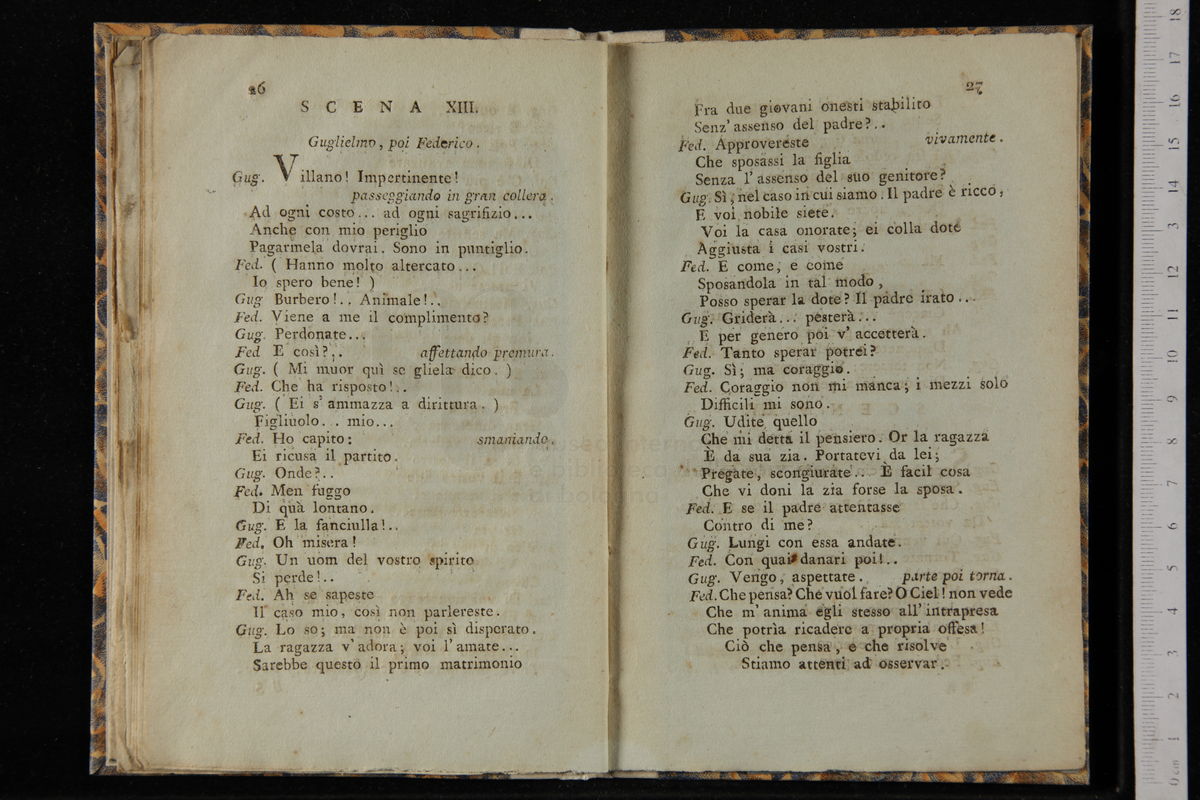 26
SCENA XIII.
Guglielmo, poi Federico.
Gug. Villano! Impertinente!
passeggiando in gran collera.
Ad ogni costo... ad ogni sagrifizio...
Anche con mio periglio
Pagarmela dovrai. Sono in puntiglio.
Fed. ( Hanno molto altercato...
Io spero bene! )
Gug Burbero!.. Animale!..
Fed. Viene a me il complimento?
Gug. Perdonate...
Fed E così?.. affettando premura.
Gug. ( Mi muor quì se gliela dico. )
Fed. Che ha risposto!..
Gug. ( Ei s'ammazza a dirittura. )
Figliuolo.. mio...
Fed. Ho capito: smaniando.
Ei ricusa il partito.
Gug. Onde?..
Fed. Men fuggo
Di quà lontano.
Gug. E la fanciulla!..
Fed. Oh misera!
Gug. Un uom del vostro spirito
Si perde!..
Fed. Ah se sapeste
Il caso mio, così non parlereste.
Gug. Lo so; ma non è poi sì disperato.
La ragazza v'adora; voi l'amate...
Sarebbe questo il primo matrimonio
27
Fra due giovani onesti stabilito
Senz'assenso del padre?..
Fed. Approvereste vivamente.
Che sposassi la figlia
Senza l'assenso del suo genitore?
Gug. Sì, nel caso in cui siamo. Il padre è ricco,
E voi nobile siete.
Voi la casa onorate; ei colla dote
Aggiusta i casi vostri.
Fed. E come, e come
Sposandola in tal modo,
Posso sperar la dote? Il padre irato...
Gug. Griderà... pesterà...
E per genero poi v'accetterà.
Fed. Tanto sperar potrei?
Gug. Sì; ma coraggio.
Fed. Coraggio non mi manca; i mezzi solo
Difficili mi sono.
Gug. Udite quello
Che mi detta il pensiero. Or la ragazza
È da sua zia. Portatevi da lei;
Pregate, scongiurate... È facil cosa
Che vi doni la zia forse la sposa.
Fed. E se il padre attentasse
Contro di me?
Gug. Lungi con essa andate.
Fed. Con quai danari poi!..
Gug. Vengo, aspettate. parte poi torna.
Fed. Che pensa? Che vuol fare? O Ciel! non vede
Che m'anima egli stesso all'intrapresa
Che potrìa ricadere a propria offesa!
Ciò che pensa, e che risolve
Stiamo attenti ad osservar.